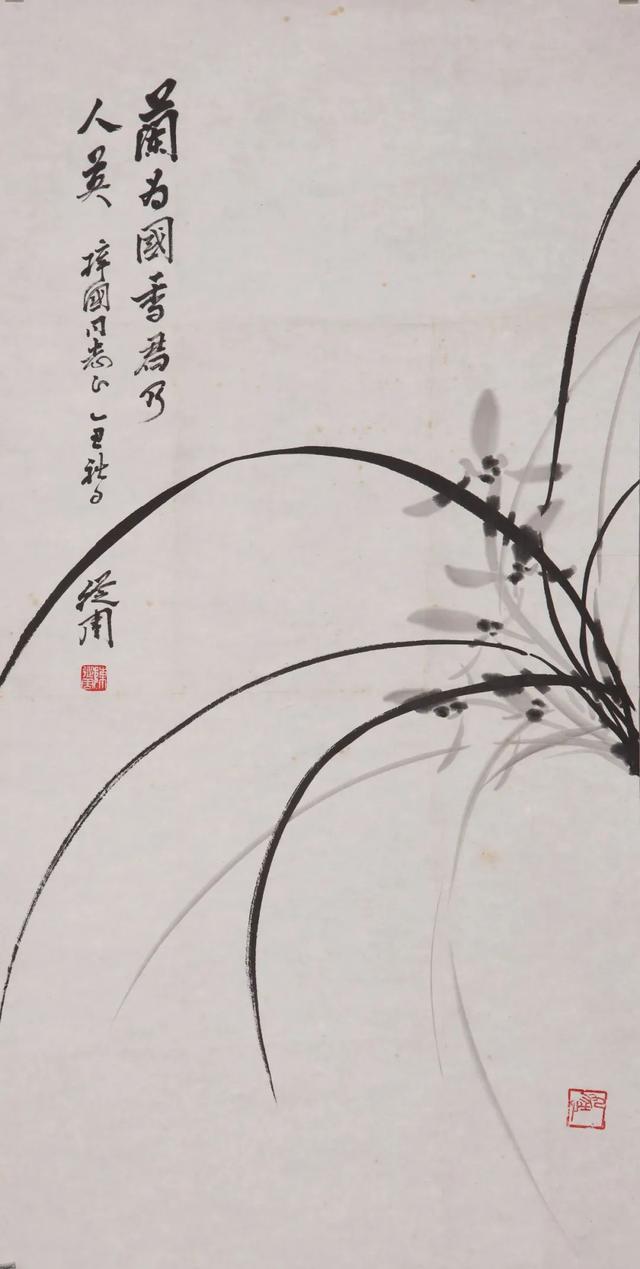 蘭為國香君乃
人英 梓國同志正 乙丑秋日 從周